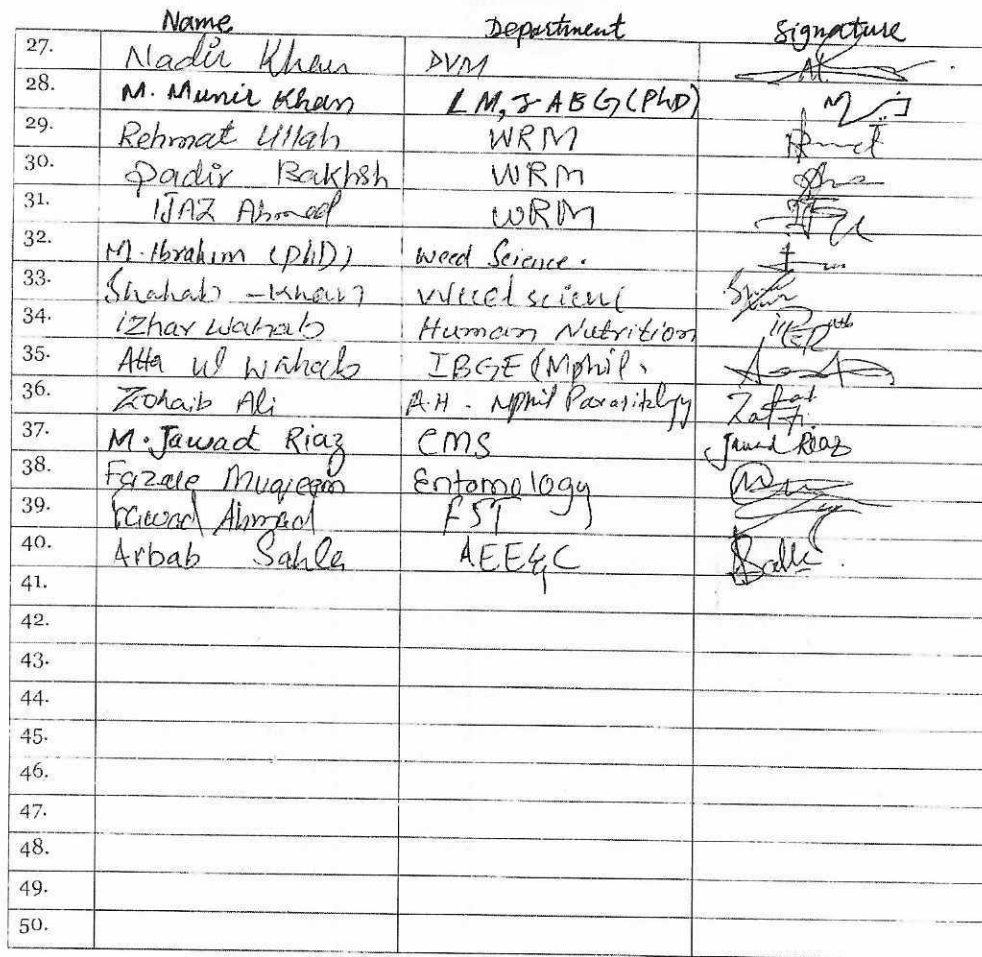 Name Department Signature
27. Nadir Khan DVM
28. M. Munir Khan LM, J-ABG (PhD)
29. Rehmat Ullah WRM
30. Qadir Bakhsh WRM
31. IJAZ Ahmed WRM
32. M. Ibrahim (PhD) Weed Science.
33. Shahab - Khan Weed scienc
34. Izhar Wahab Human Nutrition
35. Atta ul Wahab IBGE (Mphil.
36. Zohaib Ali A.H. Mphil Parasitology
37. M. Jawad Riaz CMS Jawad Riaz
38. Fazale Muqeem Entomology
39. Fawad Ahmad FST
40. Arbab Sahle AEE&C
41.
42.
43.
44.
45.
46.
47.
48.
49.
50.